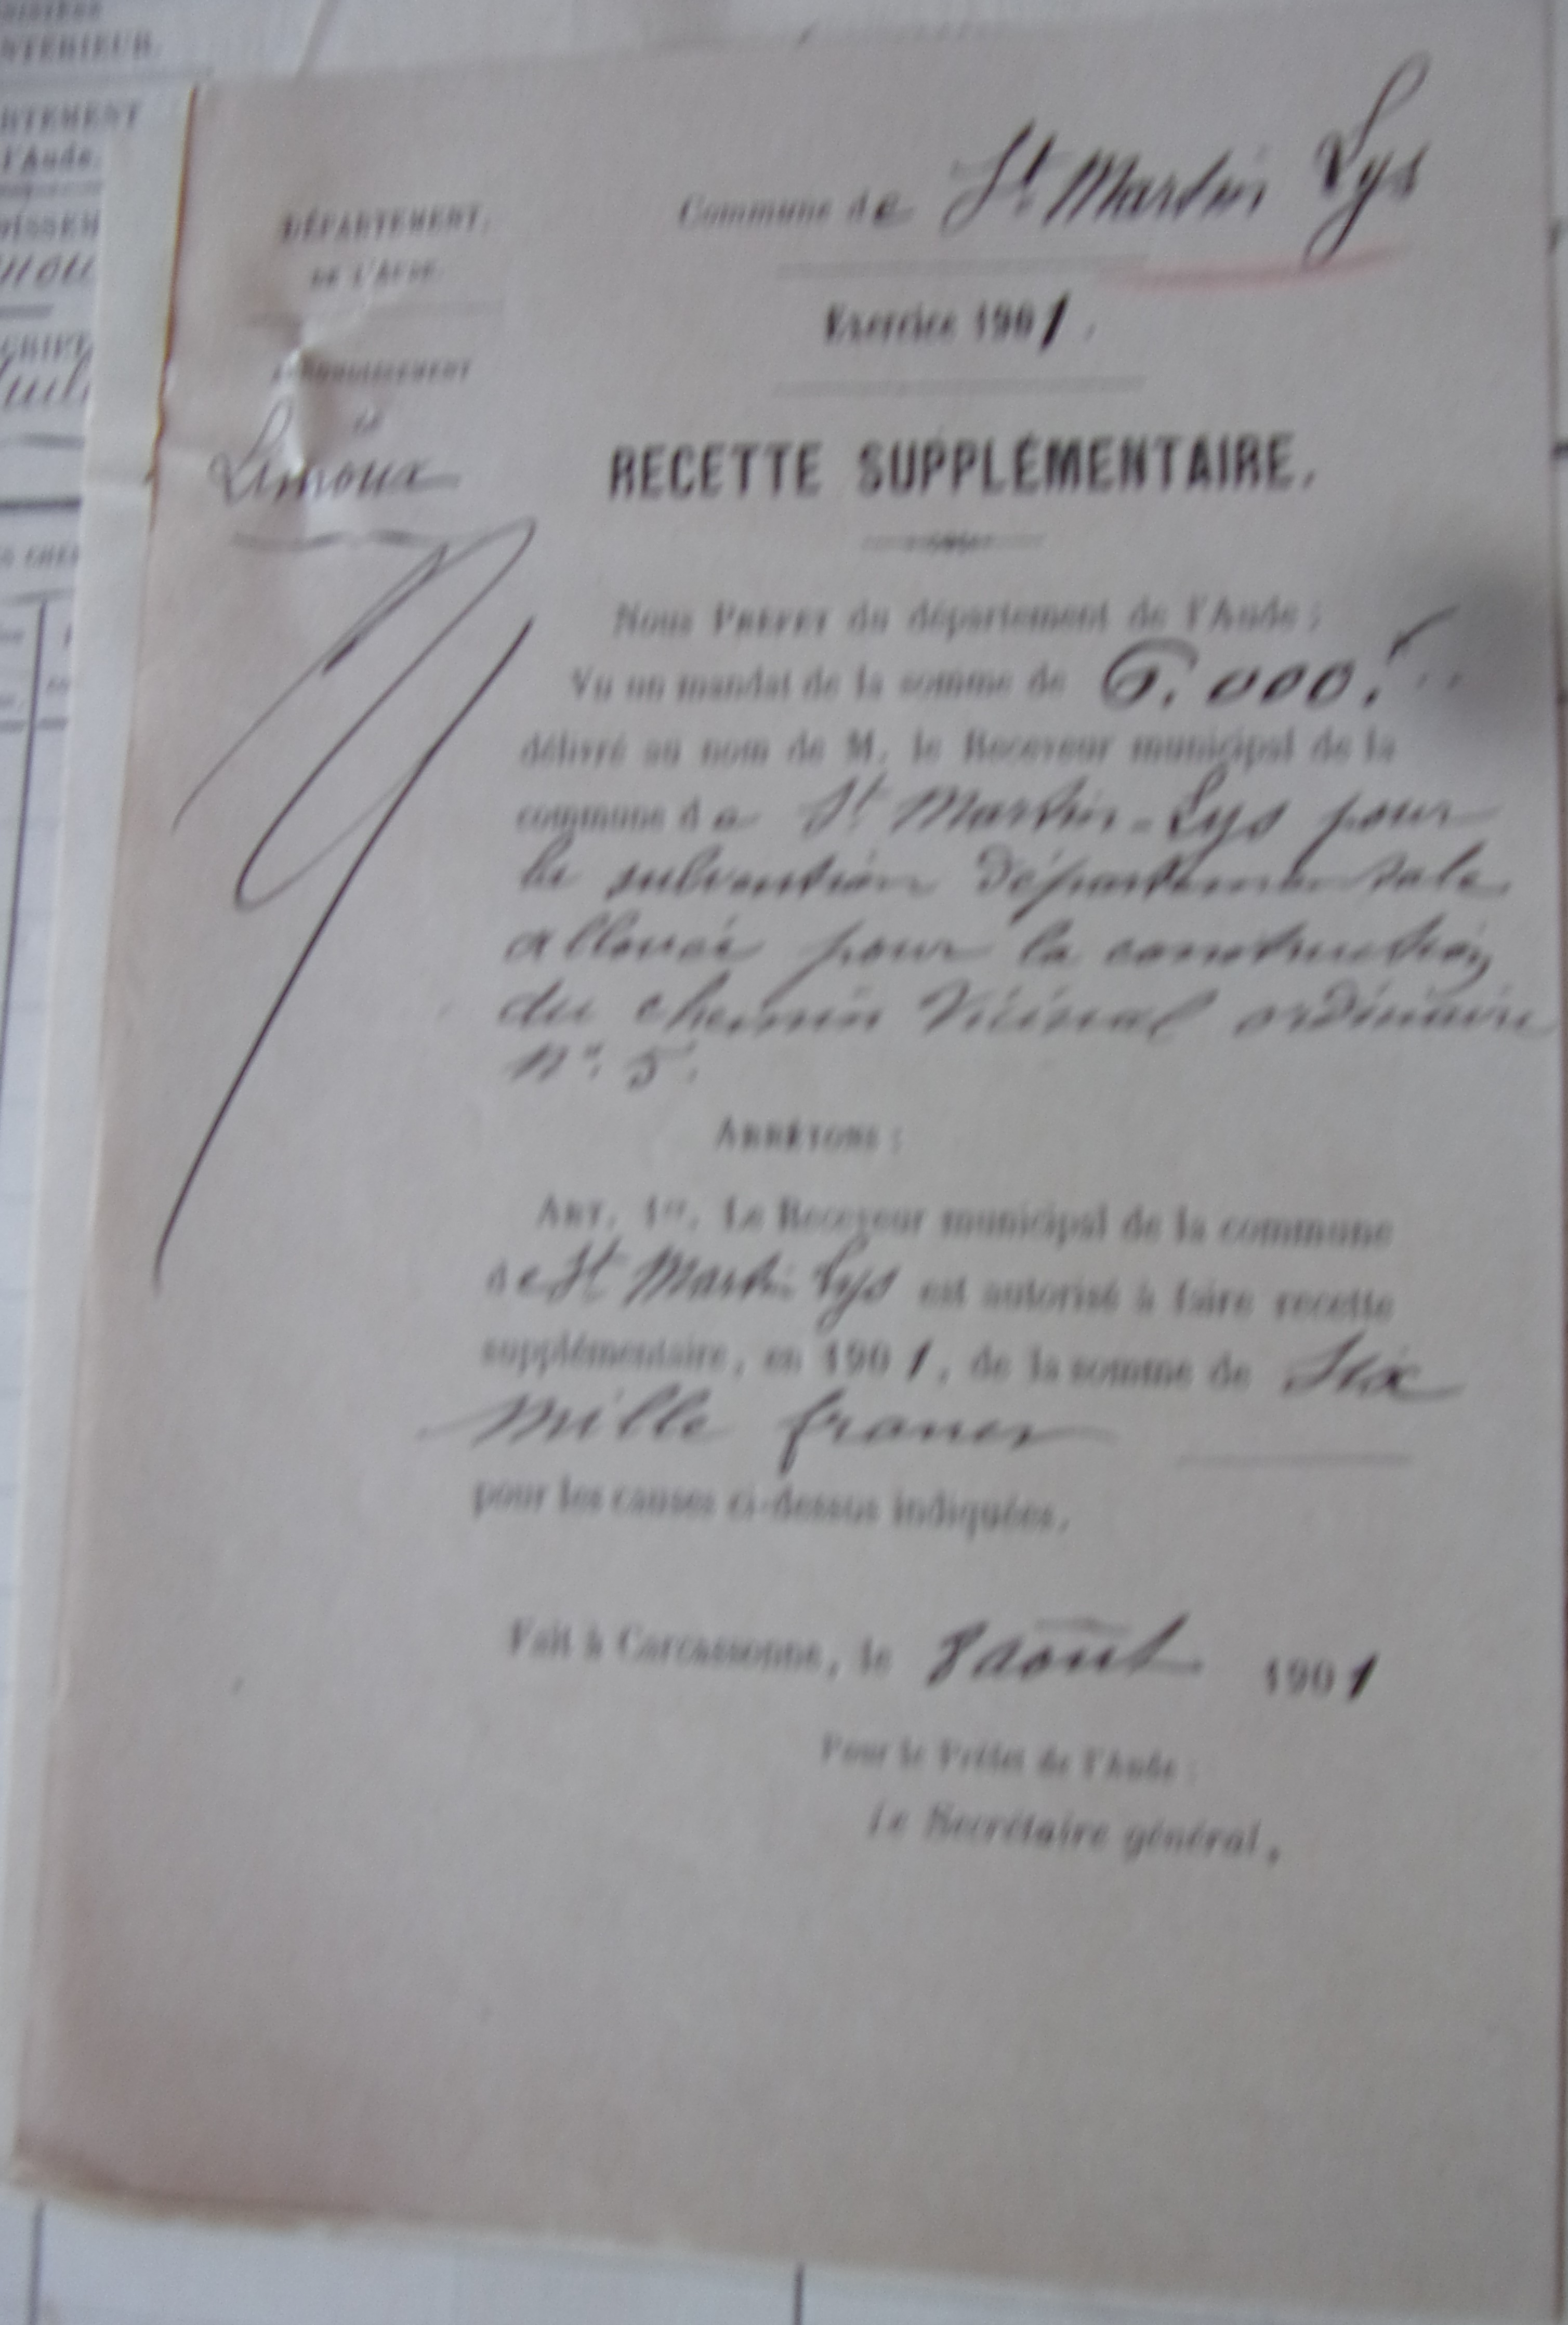 NTÉRIEUR.
RTEMENT
l'Aude.
DÉPARTEMENT.
DE L'AUDE.
ARRONDISSEMENT
de
Limoux
Commune de St Martin Lys
Exercice 1901.
RECETTE SUPPLÉMENTAIRE.
Nous PRÉFET du département de l'Aude ;
Vu un mandat de la somme de 6.000.f..
délivré au nom de M. le Receveur municipal de la
commune de St Martin-Lys pour
la subvention départementale
allouée pour la construction
du chemin vicinal ordinaire
N° 5.
ARRÊTONS :
ART. 1er. Le Receveur municipal de la commune
de St Martin Lys est autorisé à faire recette
supplémentaire, en 1901, de la somme de Six
mille francs
pour les causes ci-dessus indiquées.
Fait à Carcassonne, le 8 août 1901
Pour le Préfet de l'Aude :
Le Secrétaire général,